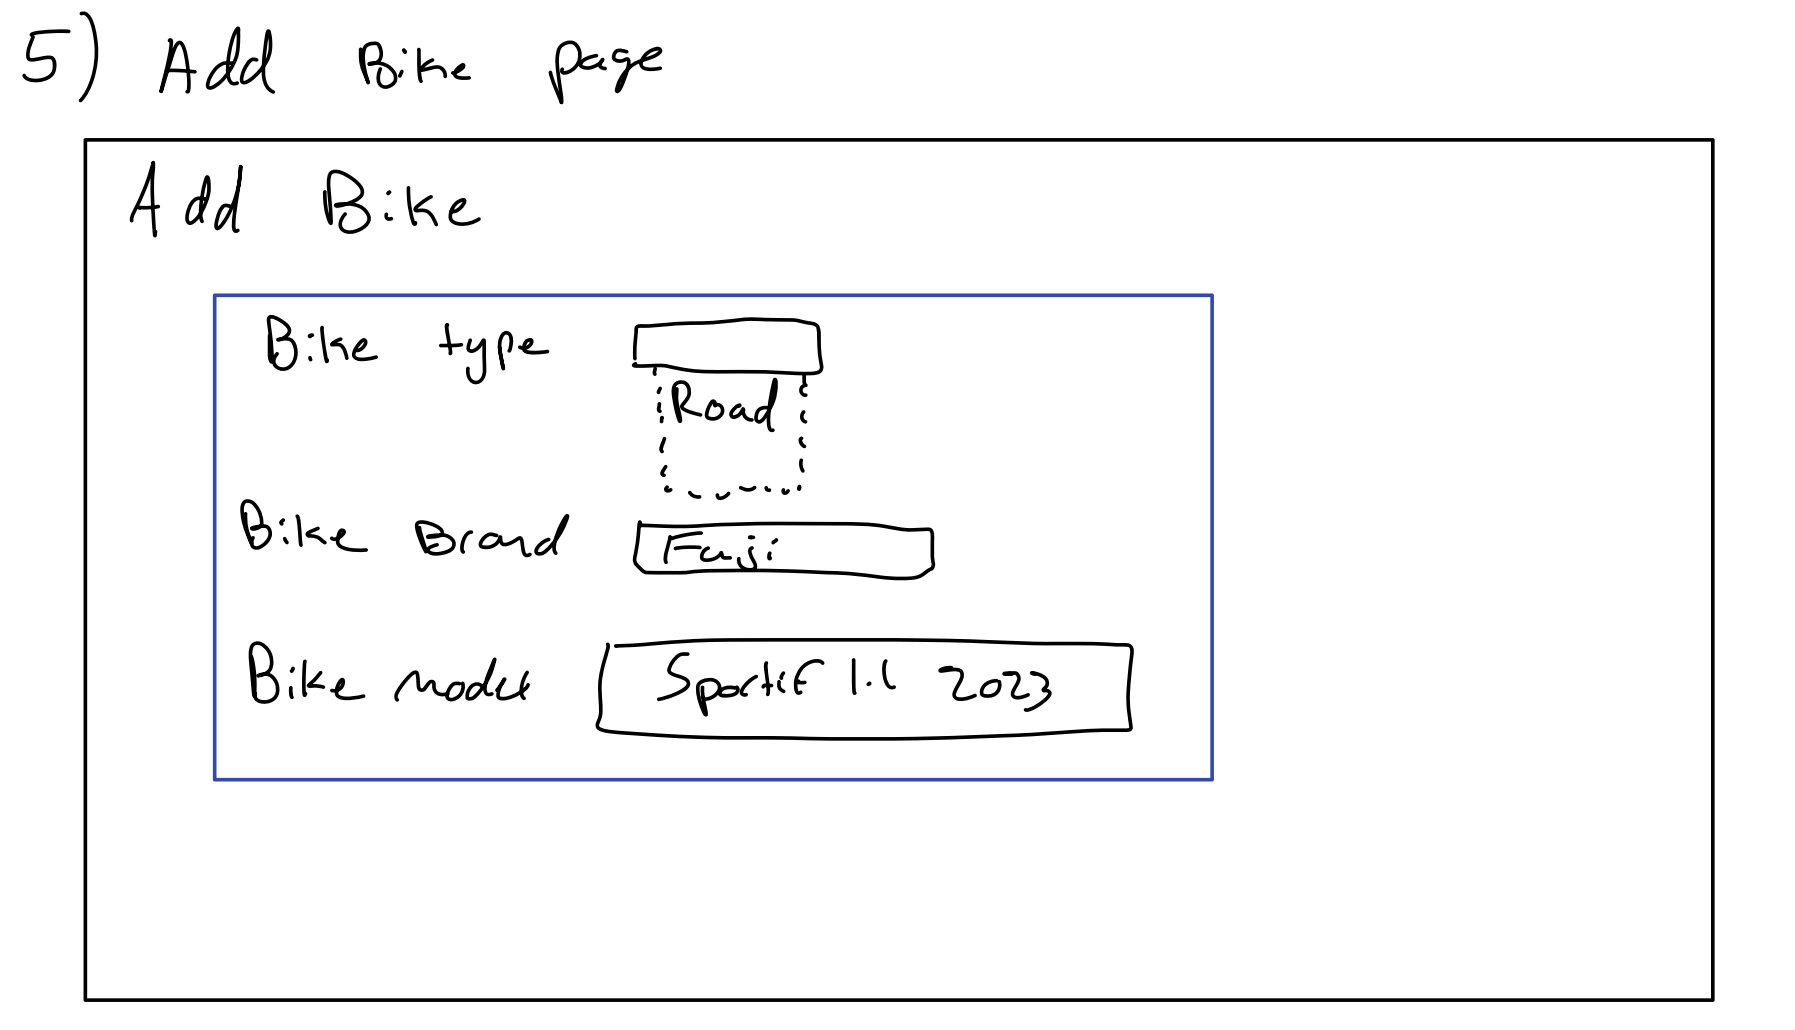 5) Add Bike page
Add Bike
Bike type
Road
Bike Brand Fuji
Bike model Sportif 1.1 2023